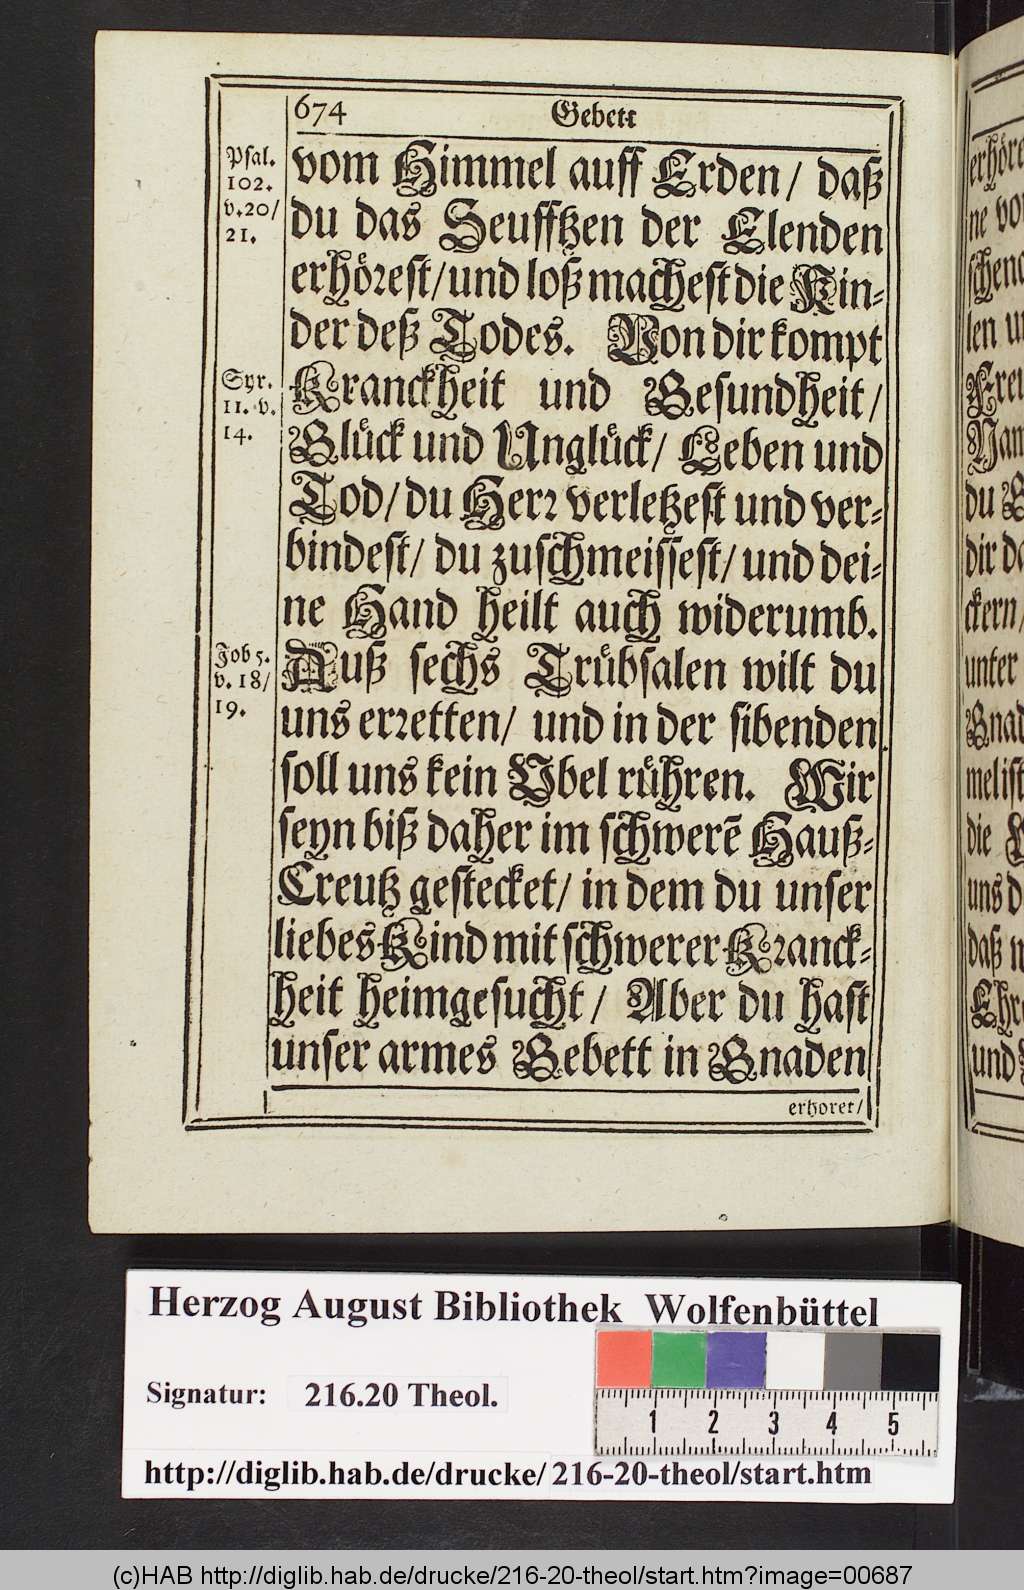 674 Gebett
Psal.
102.
v.20/
21.
vom Himmel auff Erden / daß
du das Seufftzen der Elenden
erhörest/und loß machest die Kin-
der deß Todes. Von dir kompt
Syr.
11. v.
14.
Kranckheit und Gesundheit /
Glück und Unglück / Leben und
Tod / du Herr verletzest und ver-
bindest / du zuschmeissest / und dei-
ne Hand heilt auch widerumb.
Job 5.
v. 18/
19.
Auß sechs Trübsalen wilt du
uns erretten / und in der sibenden
soll uns kein Ubel rühren. Wir
seyn biß daher im schwerẽ Hauß-
Creutz gestecket / in dem du unser
liebes Kind mit schwerer Kranck-
heit heimgesucht / Aber du hast
unser armes Gebett in Gnaden
erhöret/
erhöre
ne vo
schen
len u
Freu
Nam
du G
dir da
ckern/
unter
Gnad
melist
die
uns d
daß
Ehr
und
Herzog August Bibliothek Wolfenbüttel
Signatur: 216.20 Theol.
1 2 3 4 5
http://diglib.hab.de/drucke/ 216-20-theol/start.htm
(c)HAB http://diglib.hab.de/drucke/216-20-theol/start.htm?image=00687